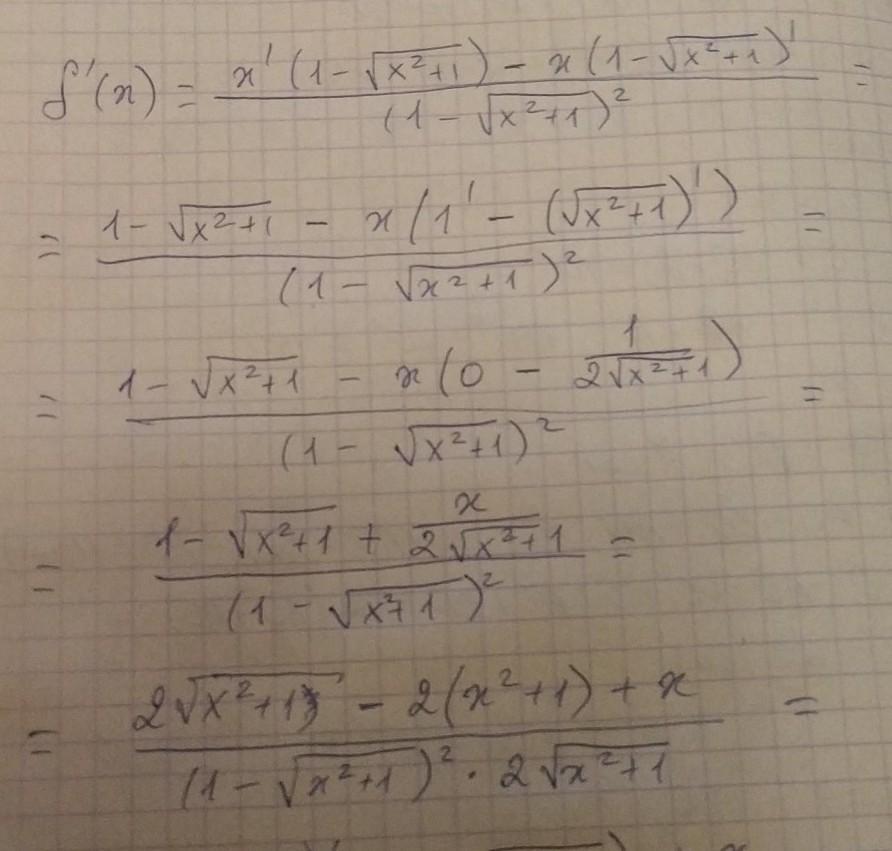 f'(x) = \frac{x'(1-\sqrt{x^2+1}) - x(1-\sqrt{x^2+1})'}{(1-\sqrt{x^2+1})^2} =
= \frac{1-\sqrt{x^2+1} - x(1' - (\sqrt{x^2+1})')}{(1-\sqrt{x^2+1})^2} =
= \frac{1-\sqrt{x^2+1} - x(0 - \frac{1}{2\sqrt{x^2+1}})}{(1-\sqrt{x^2+1})^2} =
= \frac{1-\sqrt{x^2+1} + \frac{x}{2\sqrt{x^2+1}}}{(1-\sqrt{x^2+1})^2} =
= \frac{2\sqrt{x^2+1} - 2(x^2+1) + x}{(1-\sqrt{x^2+1})^2 \cdot 2\sqrt{x^2+1}} =